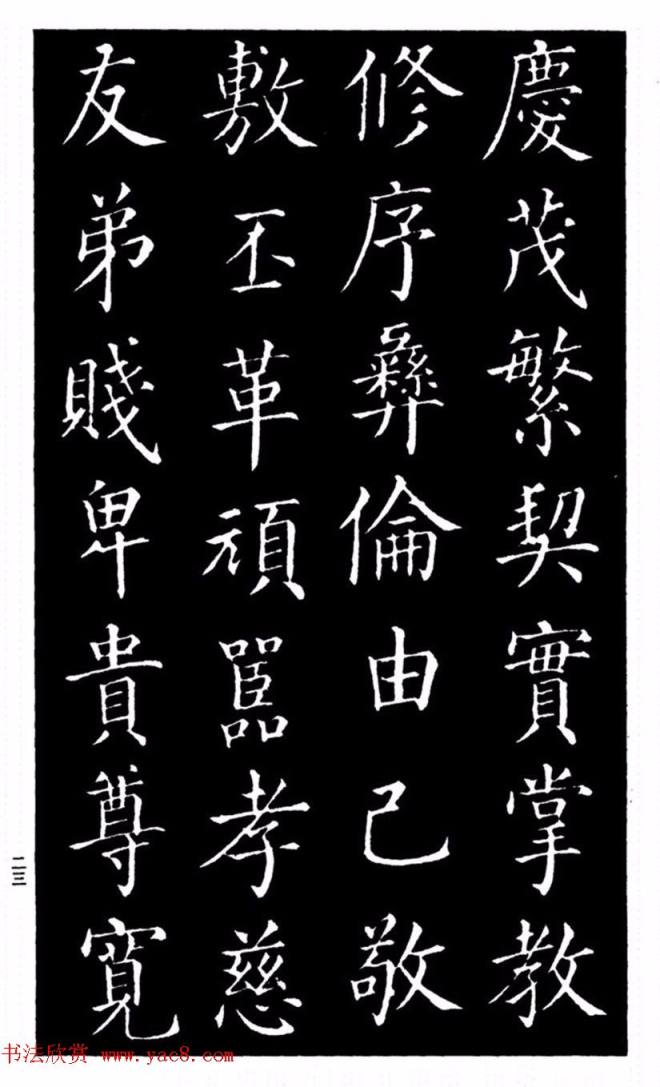 慶茂繁契實掌教
修序彝倫由己敬
敷丕革頑嚚孝慈
友弟賤卑貴尊寬
二三
书法欣赏 www.yac8.com